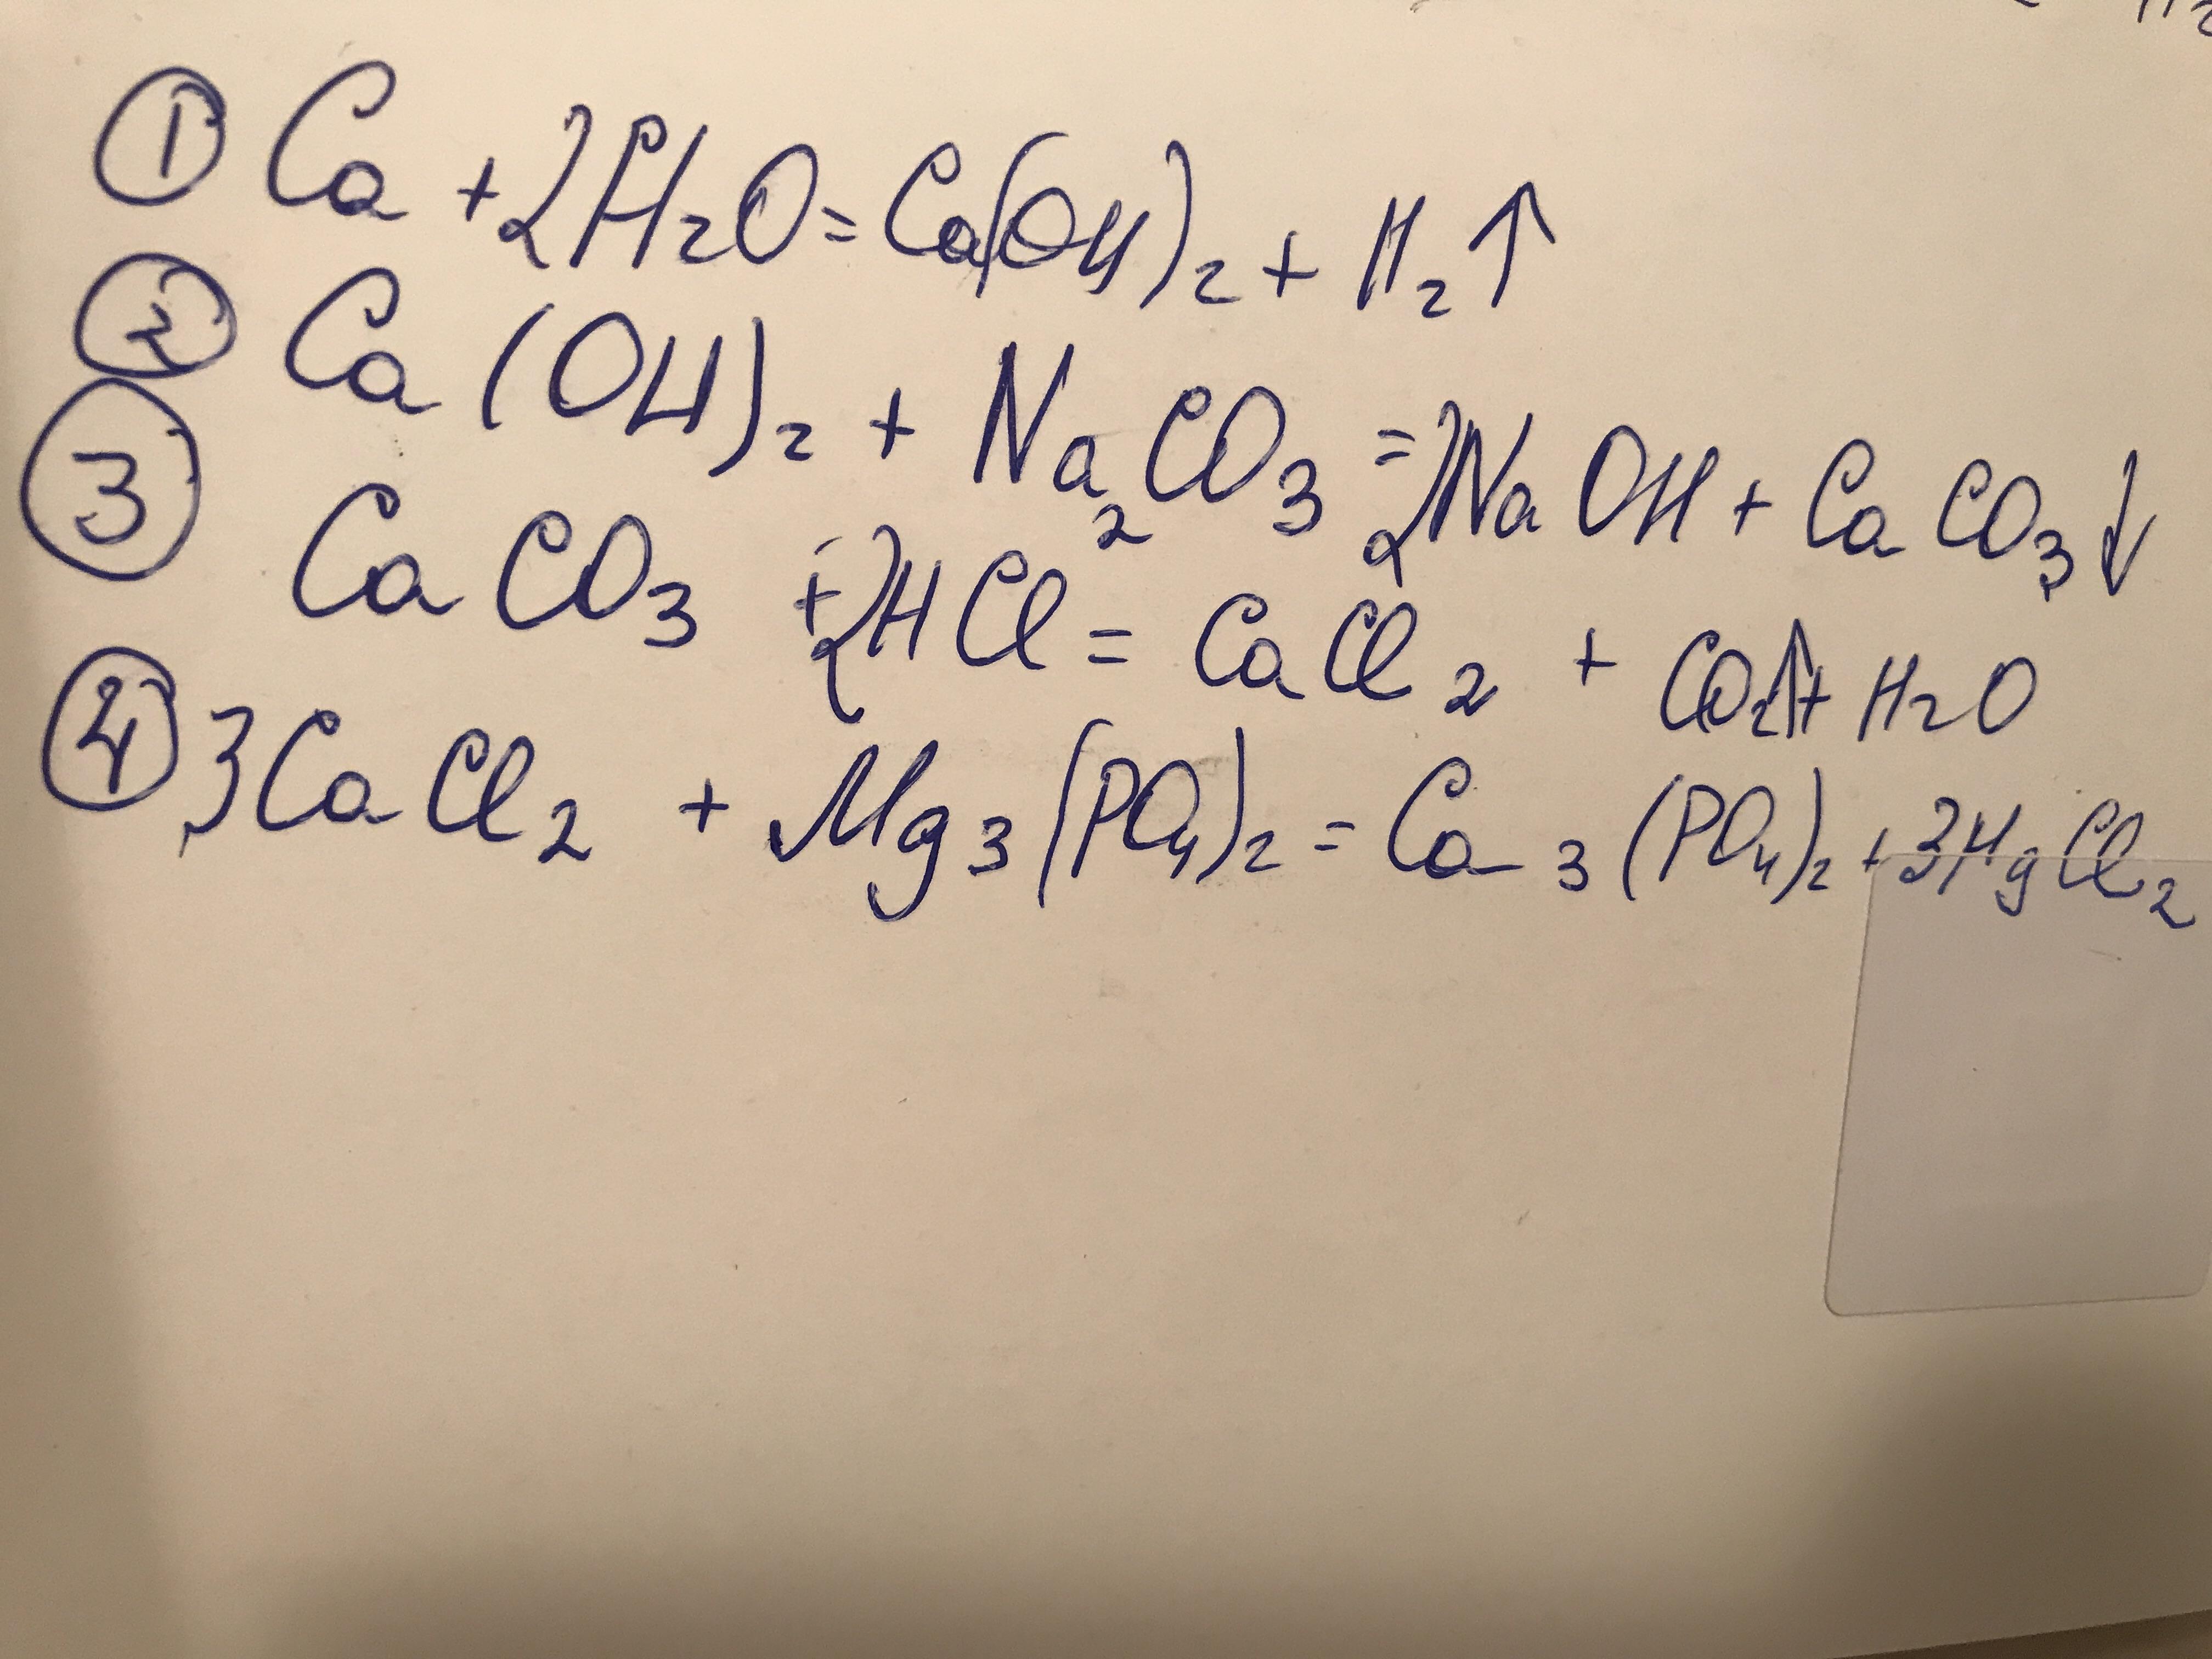 H₂
① Ca + 2H₂O = Ca(OH)₂ + H₂↑
② Ca(OH)₂ + Na₂CO₃ = 2NaOH + CaCO₃↓
③ CaCO₃ + 2HCl = CaCl₂ + CO₂↑ + H₂O
④ 3CaCl₂ + Mg₃(PO₄)₂ = Ca₃(PO₄)₂ + 3MgCl₂